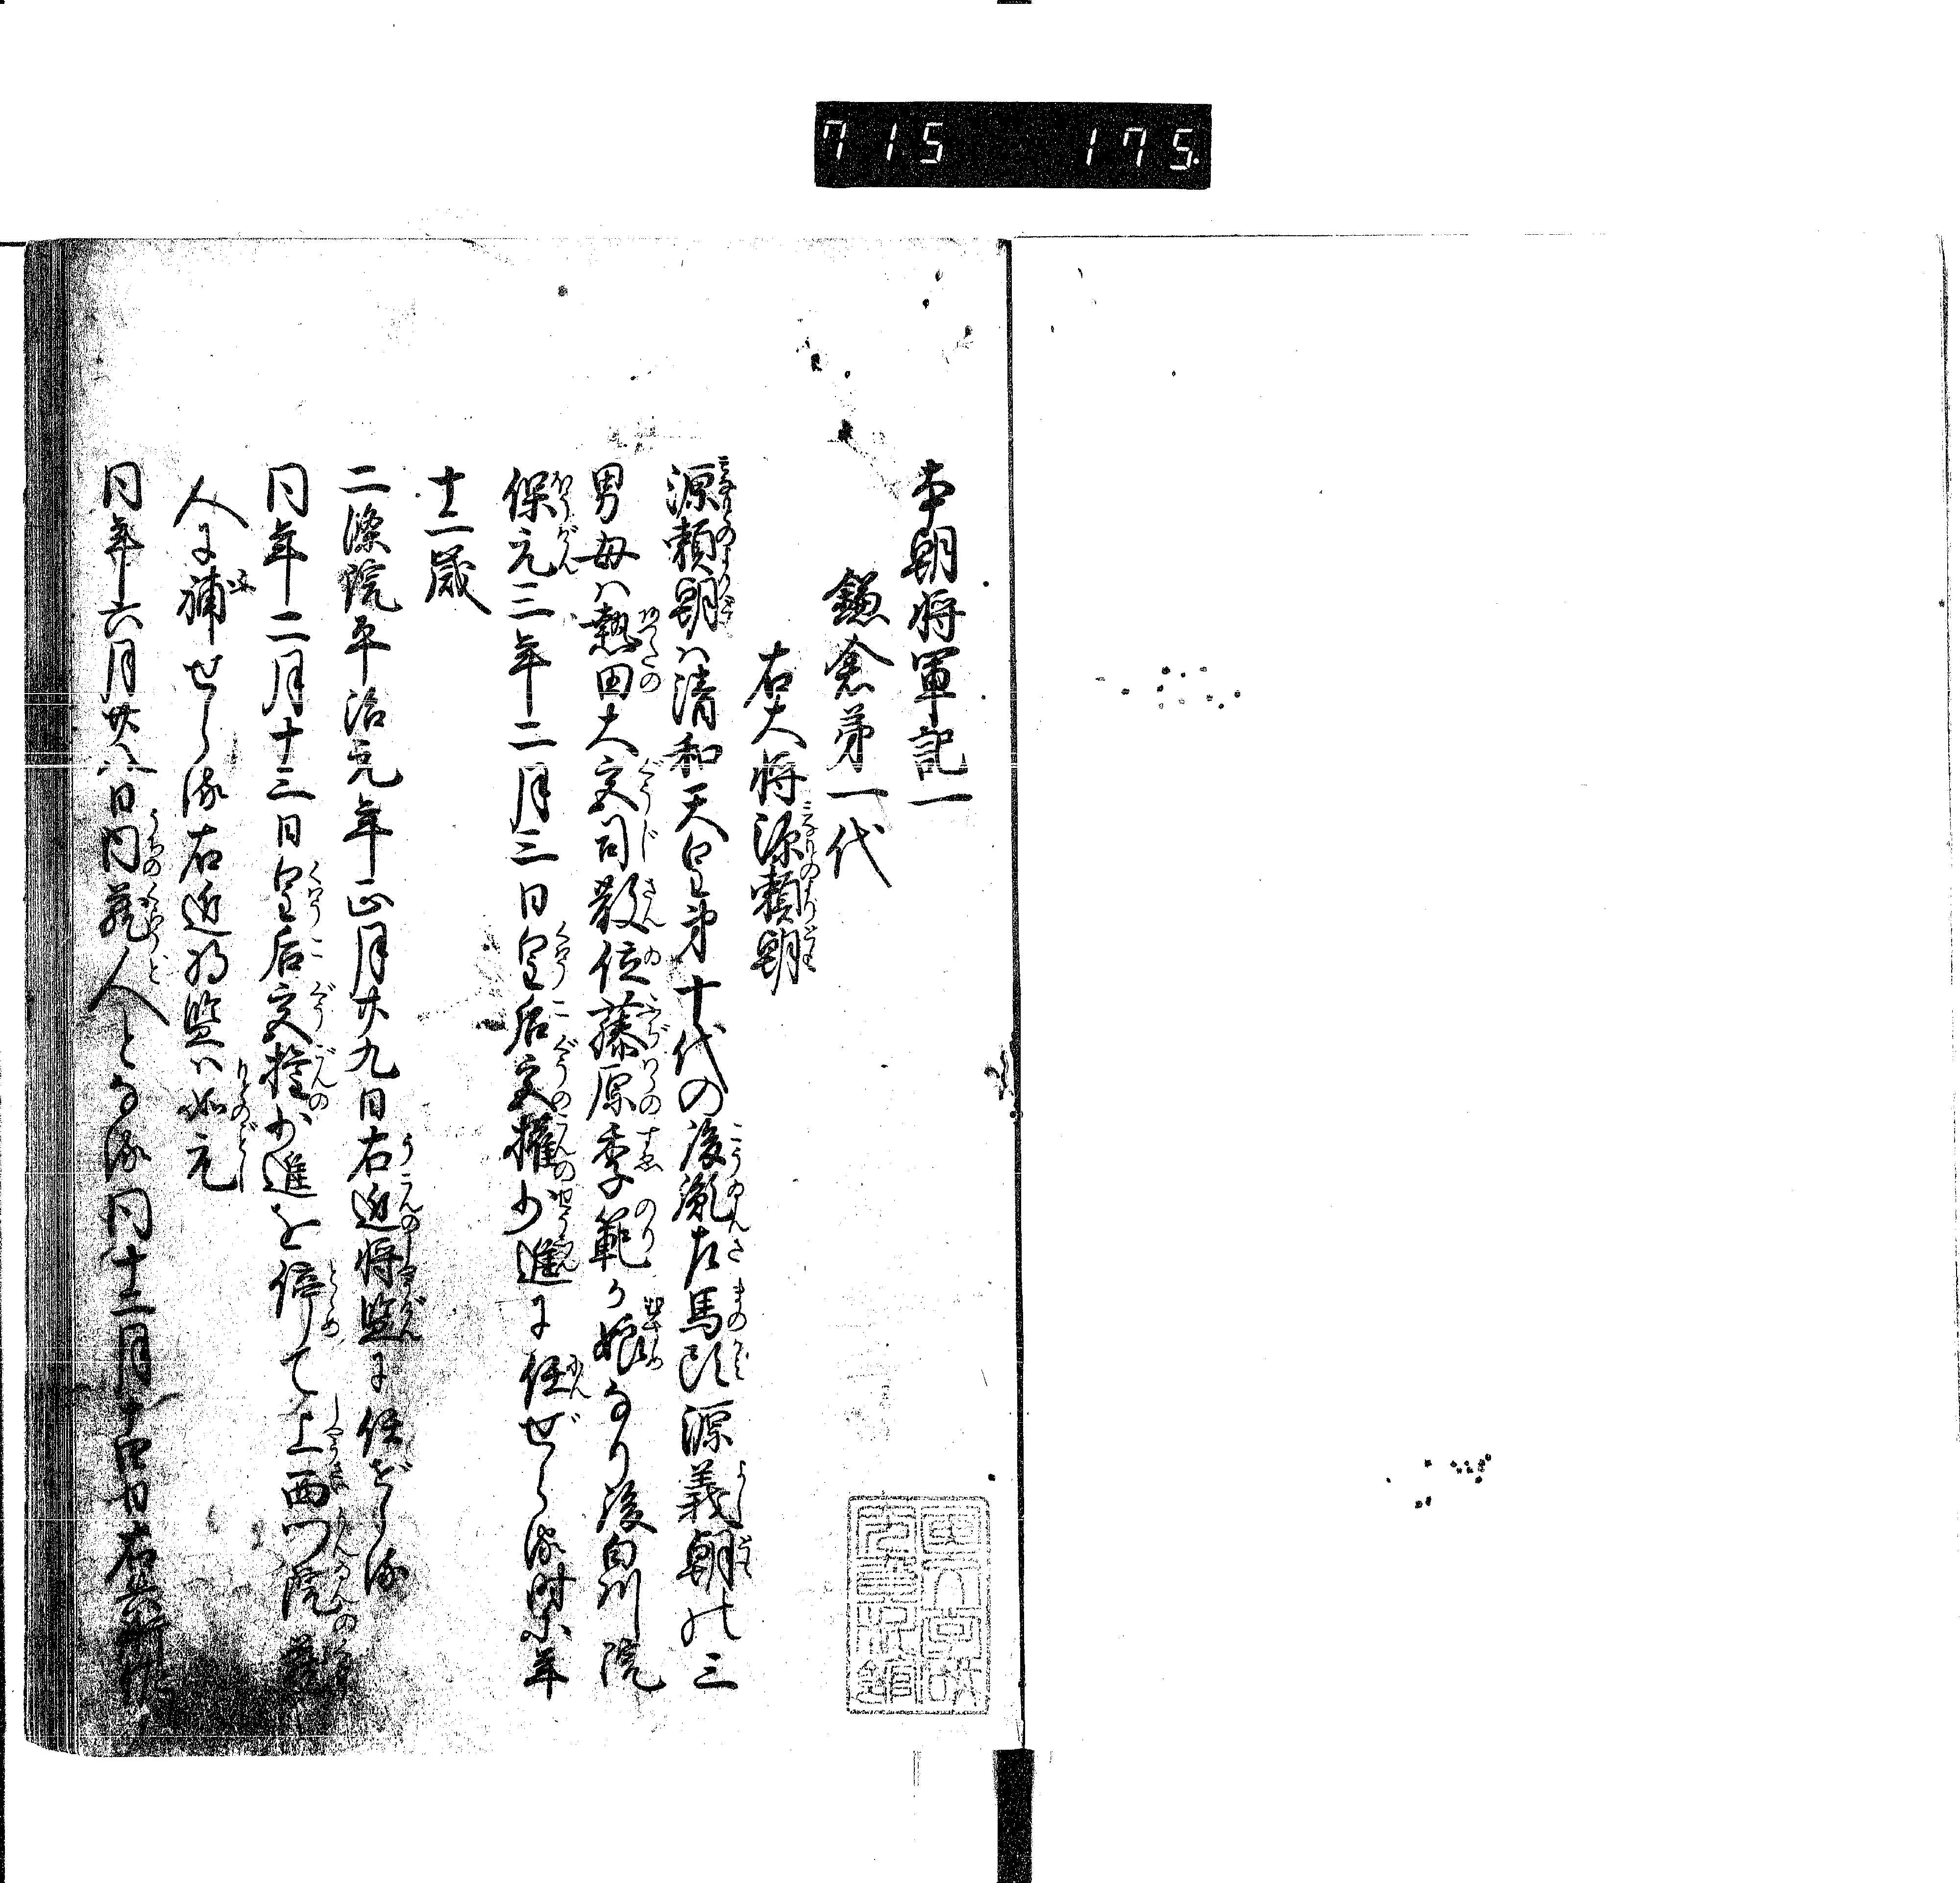 715 175
本朝将軍記一
鎌倉第一代
右大将源頼朝
源頼朝ハ清和天皇第十代の後胤左馬頭源義朝の三
男母ハ熱田大宮司散位藤原季範か娘なり後白川院
保元三年二月三日皇后宮権少進に任ぜらる時に年
十二歳
二条院平治元年正月廿九日右近将監に任ぜらる
同年二月十三日皇后宮権少進を停て上西門院蔵
人に補せらる右近将監ハ如元
同年六月廿八日内蔵人となる同十二月十四日右兵衛佐